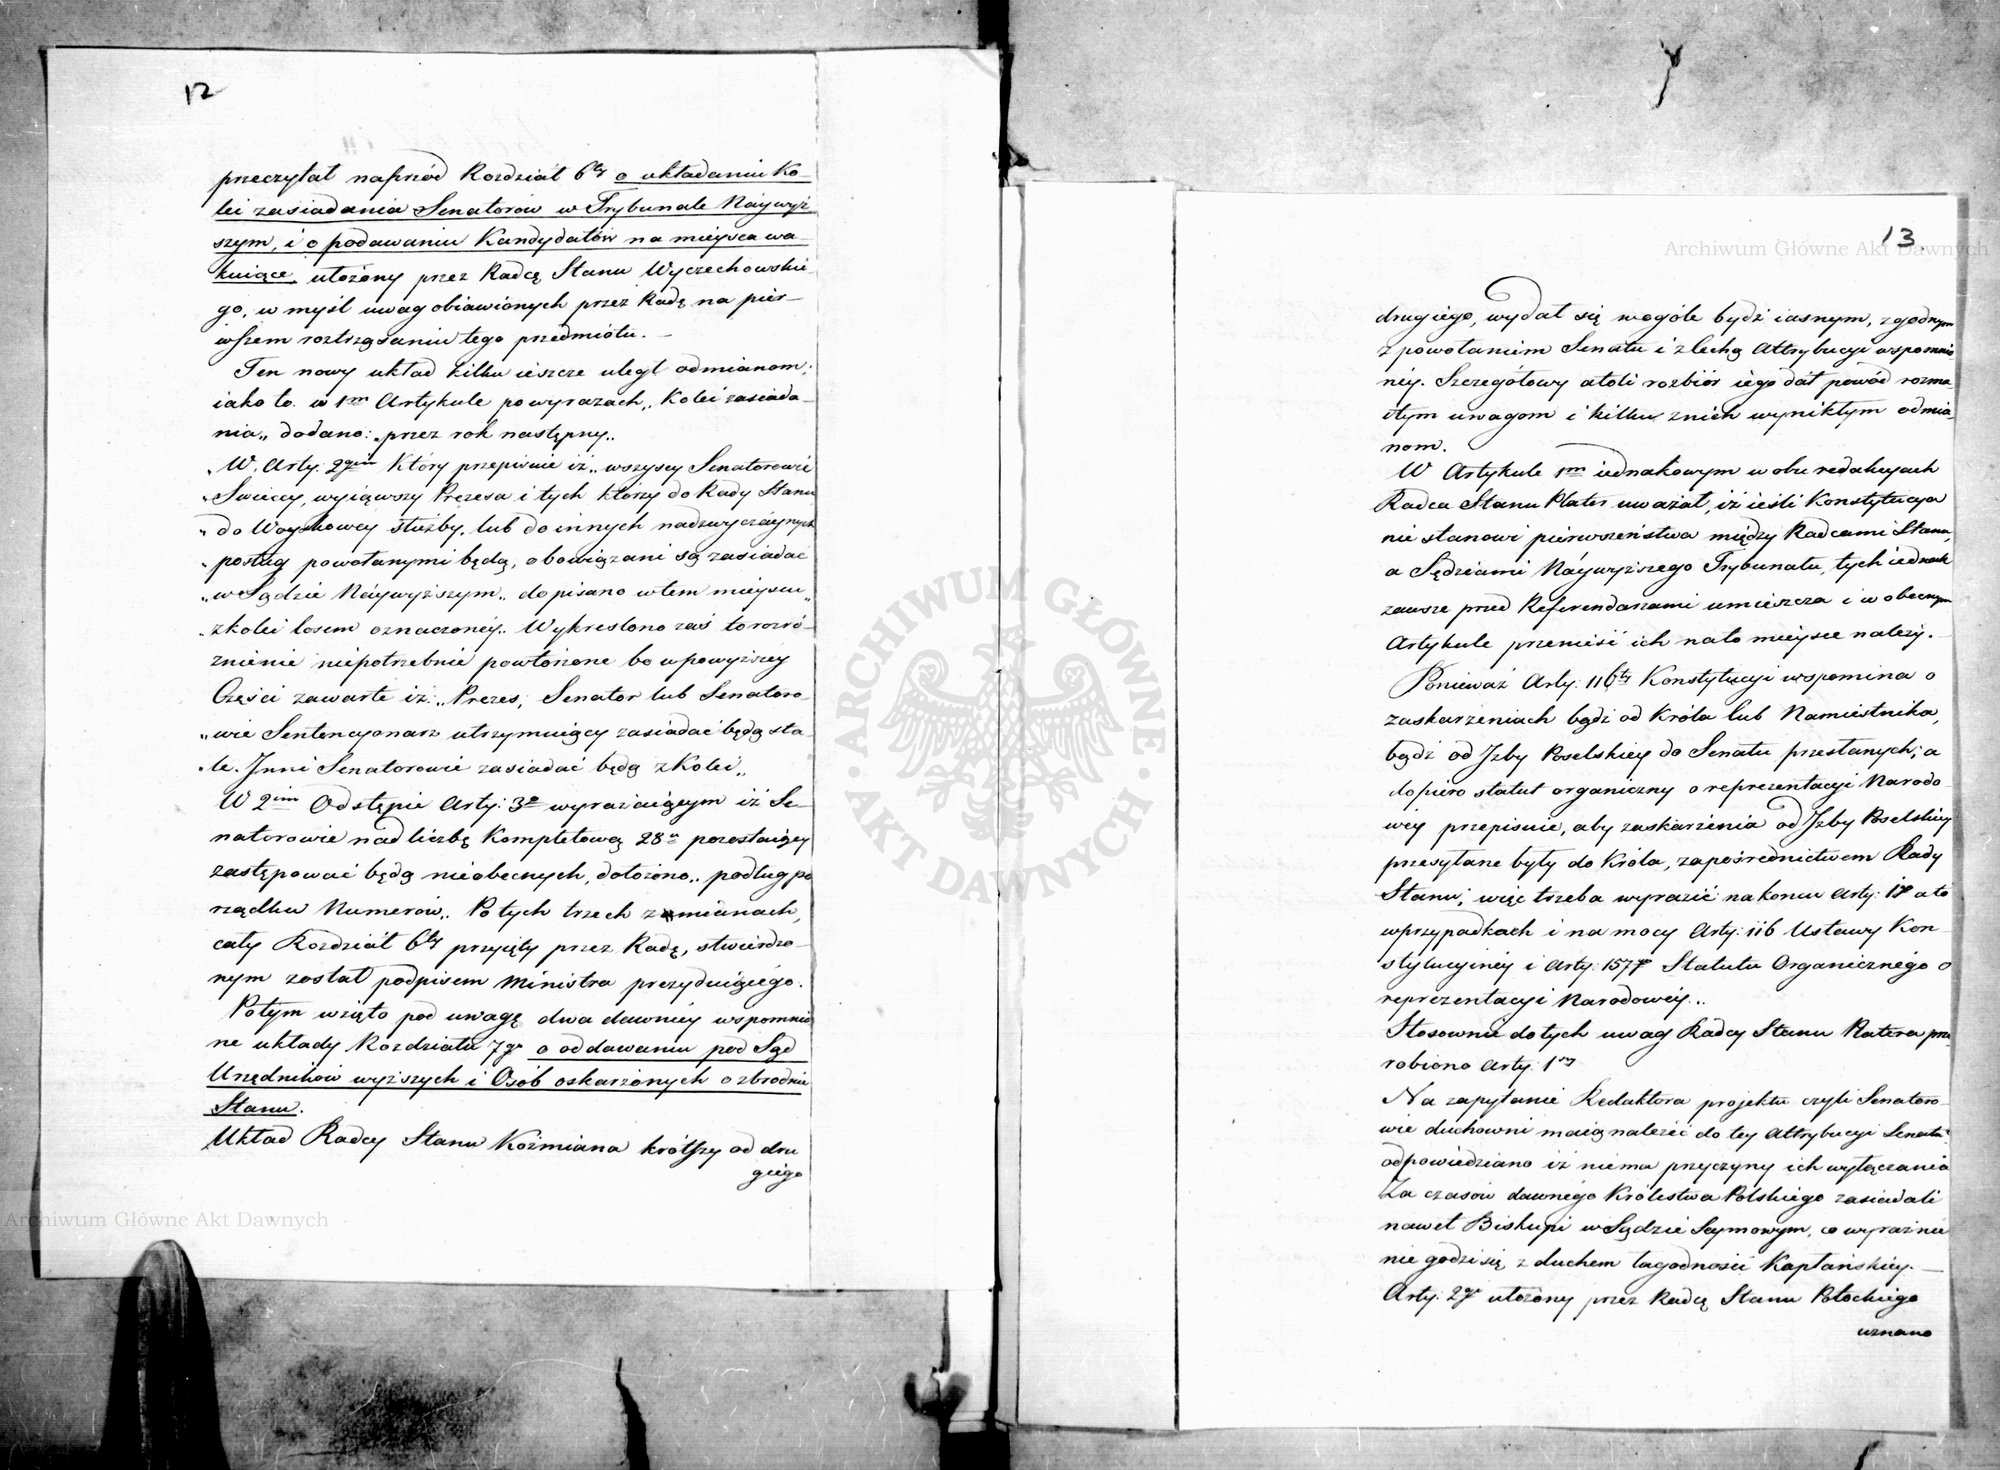 12
przeczytał naprzód Rozdział 6ty o układaniu Ko-
lei zasiadania Senatorow w Trybunale Náywyż
szym, i o podawaniu Kandydatów na mieysca wa-
kuiące, ułożony przez Radcę Stanu Wyczechowskie-
go, w myśl uwag obiawionych przez Radę na pier-
wszem roztrząsaniu tego przedmiotu. —
Ten nowy układ kilku ieszcze uległ odmianom;
iako to. w 1m Artykule po wyrazach „ Kolei zasiada-
nia „ dodano: „ przez rok następny „
„ W. Arty: 2gim Który przepisuie iż „ wszyscy Senatorowie
„ Swieccy, wyiąwszy Prezesa i tych którzy do Rady Stanu
„ do Woyskowey służby, lub do innych nadzwyczáynych
„ posług powołanymi będą, obowiązani są zasiadać
„ w Sądzie Náywyższym „ dopisano w tem mieyscu „
„ z kolei losem oznaczonéy „ Wykreślono zaś to rozró-
żnienie niepotrzebnie powtórzone bo w powyższéy
Części zawarte iż: „ Prezes, Senator lub Senatoro-
„ wie Sentencyonarz utrzymuiący zasiadać będą sta-
„ le. Inni Senatorowie zasiadać będą z Kolei „
W 2gim Odstępie Arty: 3o wyrażaiącym iż Se-
natorowie nad liczbę Kompletową 28u pozostaiący
zastępować będą nieobecnych, dołożono „ podług po
rządku Numerów „ Po tych trzech zmianach,
cały Rozdział 6ty przyięty przez Radę, stwierdzo-
nym został podpisem Ministra prezyduiącego.
Potym wzięto pod uwagę dwa dawniéy wspomnio
ne układy Rozdziału 7go o oddawaniu pod Sąd
Urzędników wyższych i Osób oskarżonych o zbrodnie
Stanu.
Układ Radcy Stanu Koźmiana krótszy od dru
giego
13.
drugiego, wydał się wogóle bydź iasnym, zgodnym
z powołaniem Senatu i z lechą Attrybucyi wspomnio
néy. Szczegółowy atoli rozbiór iego dał powód rozma
itym uwagom i kilku z nich wynikłym odmia-
nom.
W Artykule 1m iednakowym w obu redakcyach
Radca Stanu Plater uważał, iż ieśli Konstytucya
nie stanowi pierwszeństwa między Radcami Stanu,
a Sędziami Náywyższego Trybunału, tych iednak
zawsze przed Referendarzami umieszcza i w obecnym
Artykule przenieść ich na to mieysce należy. —
Ponieważ Arty: 116ty Konstytucyi wspomina o
zaskarzeniach bądź od Króla lub Namiestnika,
bądź od Izby Poselskiey do Senatu przesłanych; a
dopiero statut organiczny o reprezentacyi Narodo
wey przepisuie, aby zaskarżenia od Izby Poselskiey
przesyłane były do Króla, za pośrednictwem Rady
Stanu; więc trzeba wyrazić na końcu Arty: 1go a to
w przypadkach i na mocy Arty: 116 Ustawy Kon-
stytucyinéy i Arty: 157go Statutu Organicznego o
reprezentacyi Narodowéy „
Stosownie do tych uwag Radcy Stanu Platera prze
robiono Arty: 1szy
Na zapytanie Redaktora projektu czyli Senatoro-
wie duchowni maią należeć do tey Attrybucyi Senatu
odpowiedziano iż niema przyczyny ich wyłączania
Za czasów dawnego Królestwa Polskiego zasiadali
nawet Biskupi w Sądzie Seymowym, co wyraźnie
nie godzi się z duchem łagodności Kapłańskiey. —
Arty: 2gi ułożony przez Radcę Stanu Potockiego
uznano
Archiwum Główne Akt Dawnych
Archiwum Główne Akt Dawnych
ARCHIWUM GŁÓWNE · AKT DAWNYCH ·